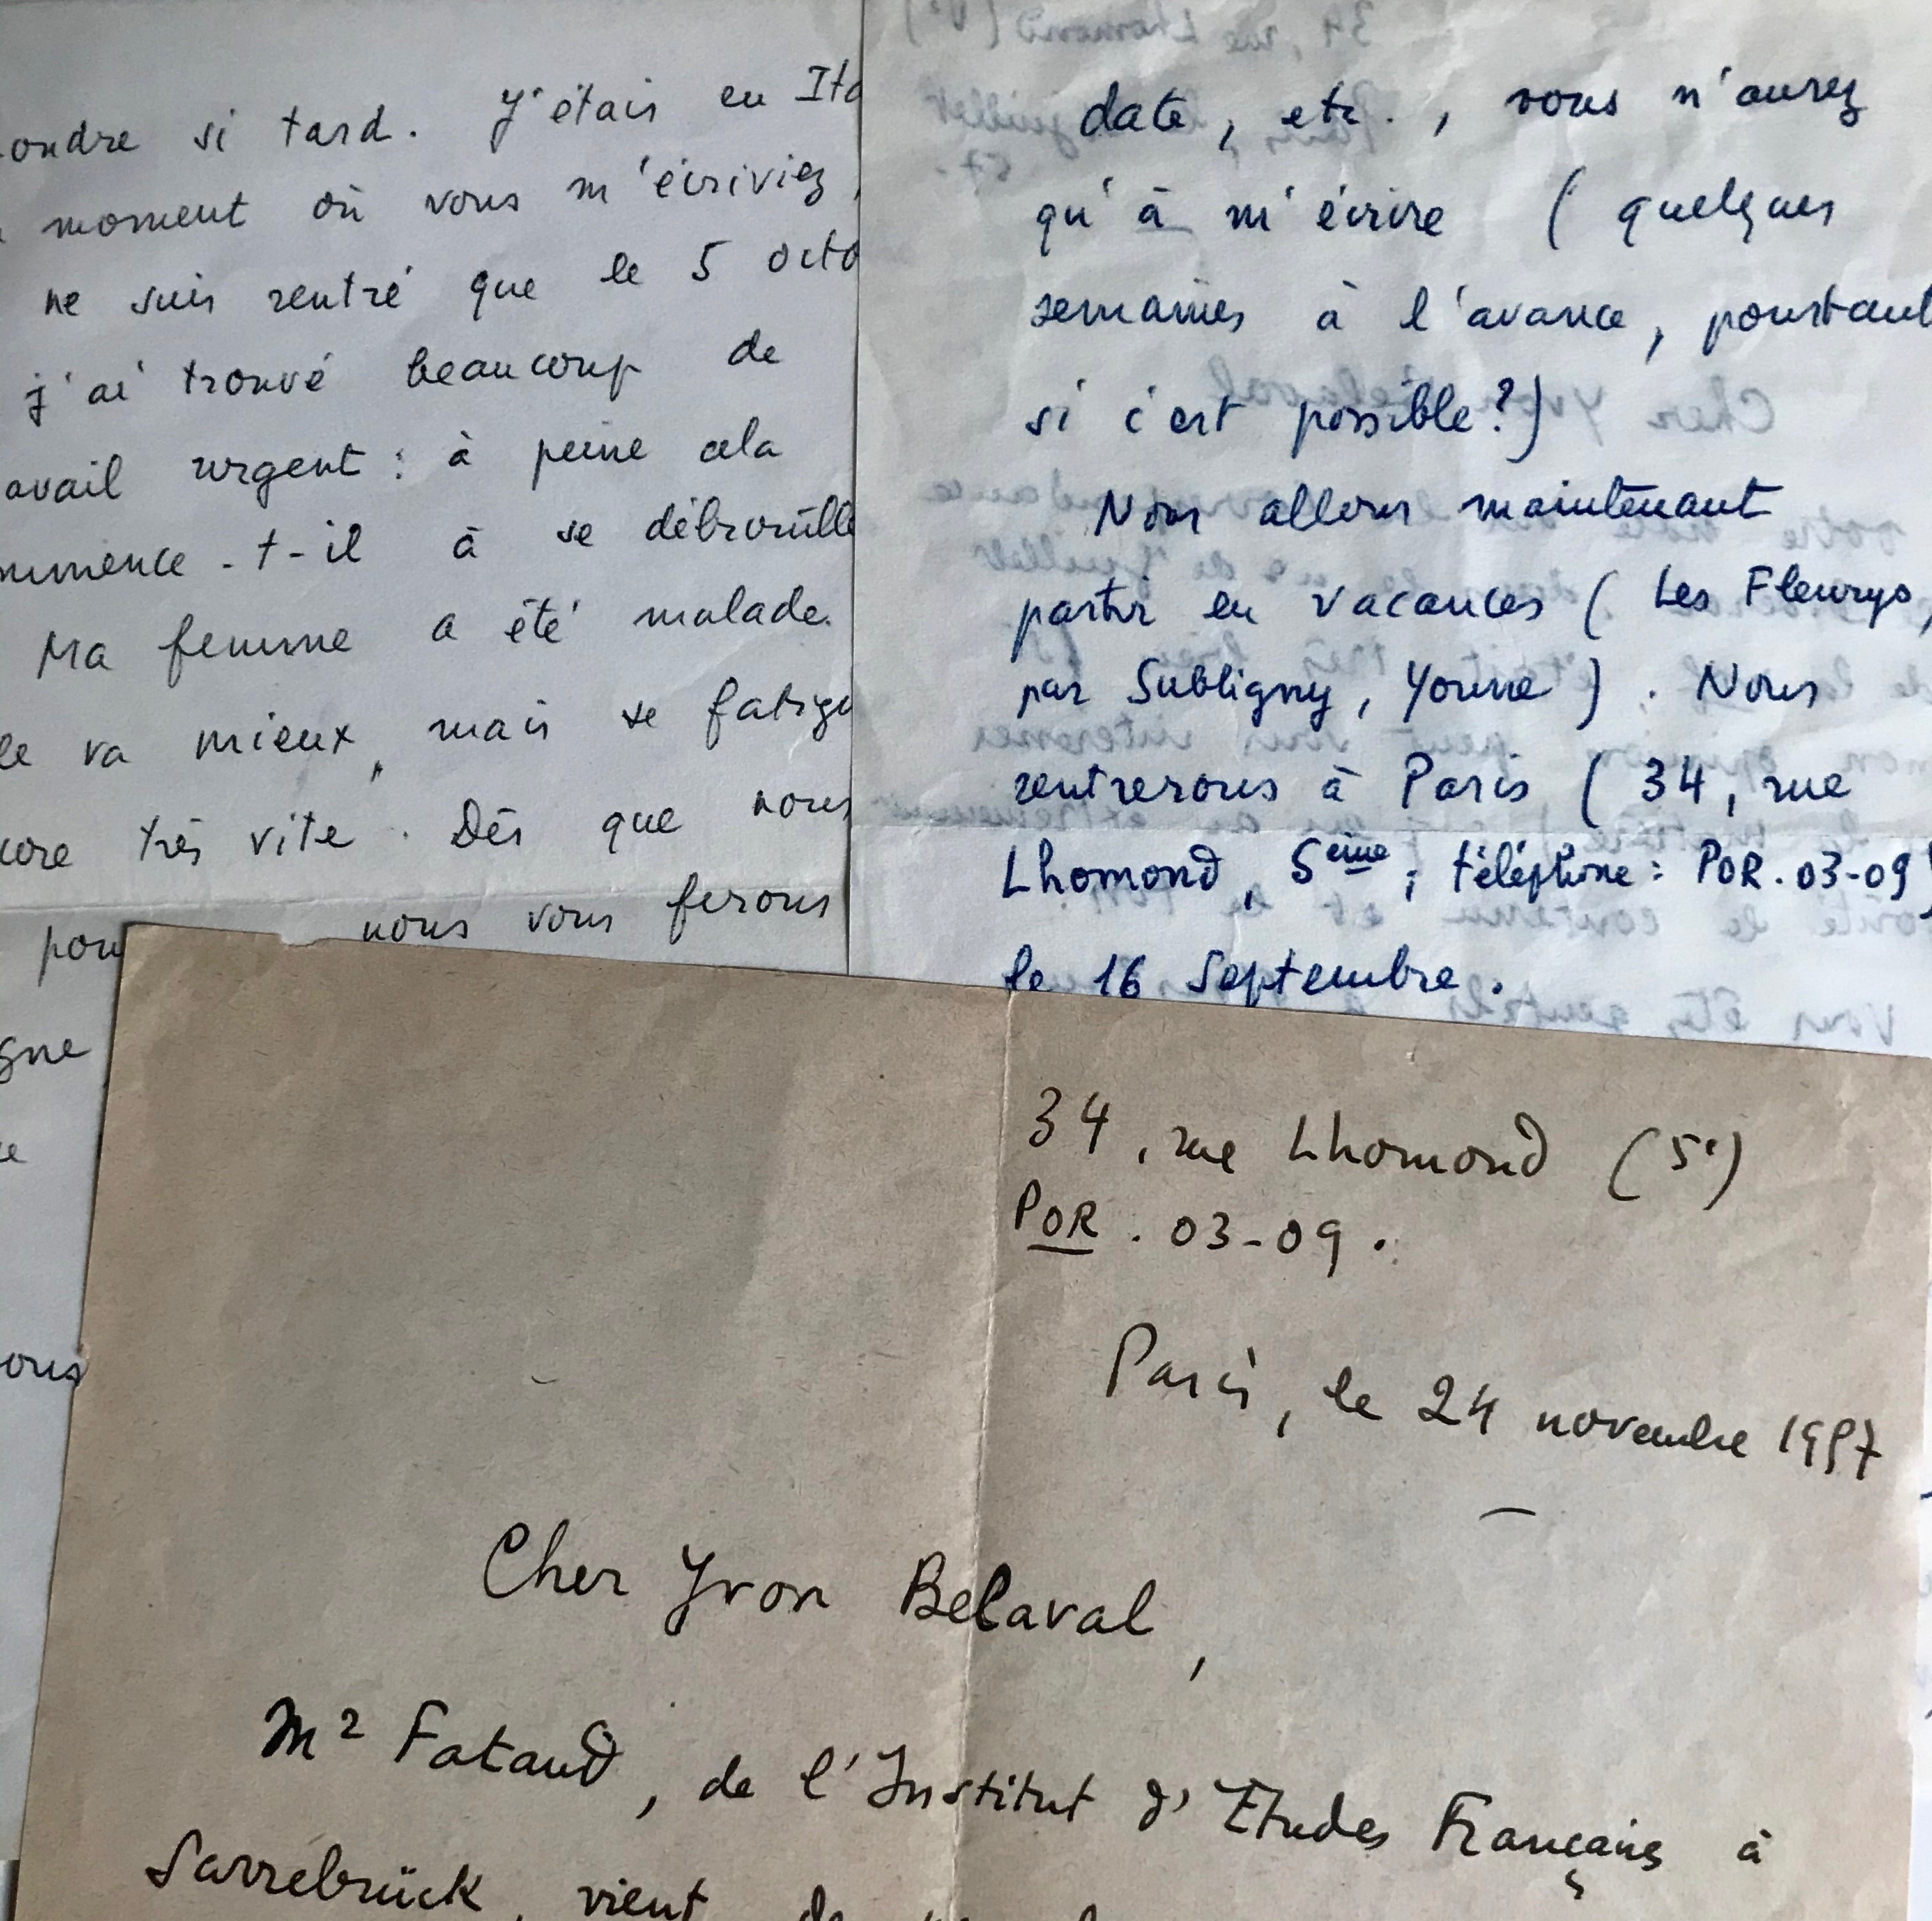 ondre si tard. J'étais en Ita
moment où vous m'écriviez,
ne suis rentré que le 5 octo
j'ai trouvé beaucoup de
avail urgent : à peine cela
mmence-t-il à se débrouille
Ma femme a été malade.
le va mieux, mais se fatigu
core très vite. Dès que nous
pou nous vous ferons
gne
ous
date, etc., vous n'aurez
qu'à m'écrire (quelques
semaines à l'avance, pourtant
si c'est possible?)
Nous allons maintenant
partir en vacances (Les Fleurys,
par Subligny, Yonne). Nous
rentrerons à Paris (34, rue
Lhomond, 5ème; téléphone : POR. 03-09)
le 16 Septembre.
34, rue Lhomond (5e)
POR. 03-09.
Paris, le 24 novembre 1957
Cher Yvon Belaval,
Mr Fataud, de l'Institut d'Etudes Françaises à
Sarrebrück, vient de